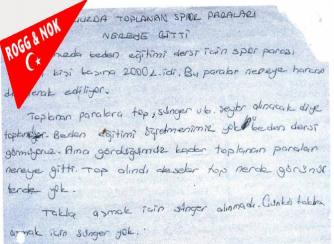 ROGG & NOK
TOPLANAN SPOR PARALARI
NEREYE GİTTİ
beden eğitimi dersi için spor parası
kişi başına 2000 L. idi. Bu paralar nereye harcanı
merak ediliyor.
Toplanan paralara top, sünger vb. şeyler alınacak diye
toplanıyor. Beden eğitimi öğretmenimiz yok beden dersi
görmüyoruz. Ama gördüğümüz kadar toplanan paralar
nereye gitti. Top alındı deseler top nerde görünür
lerde yok.
Takla aşmak için sünger alınmadı. Çünkü takla
aşmak için sünger yok.